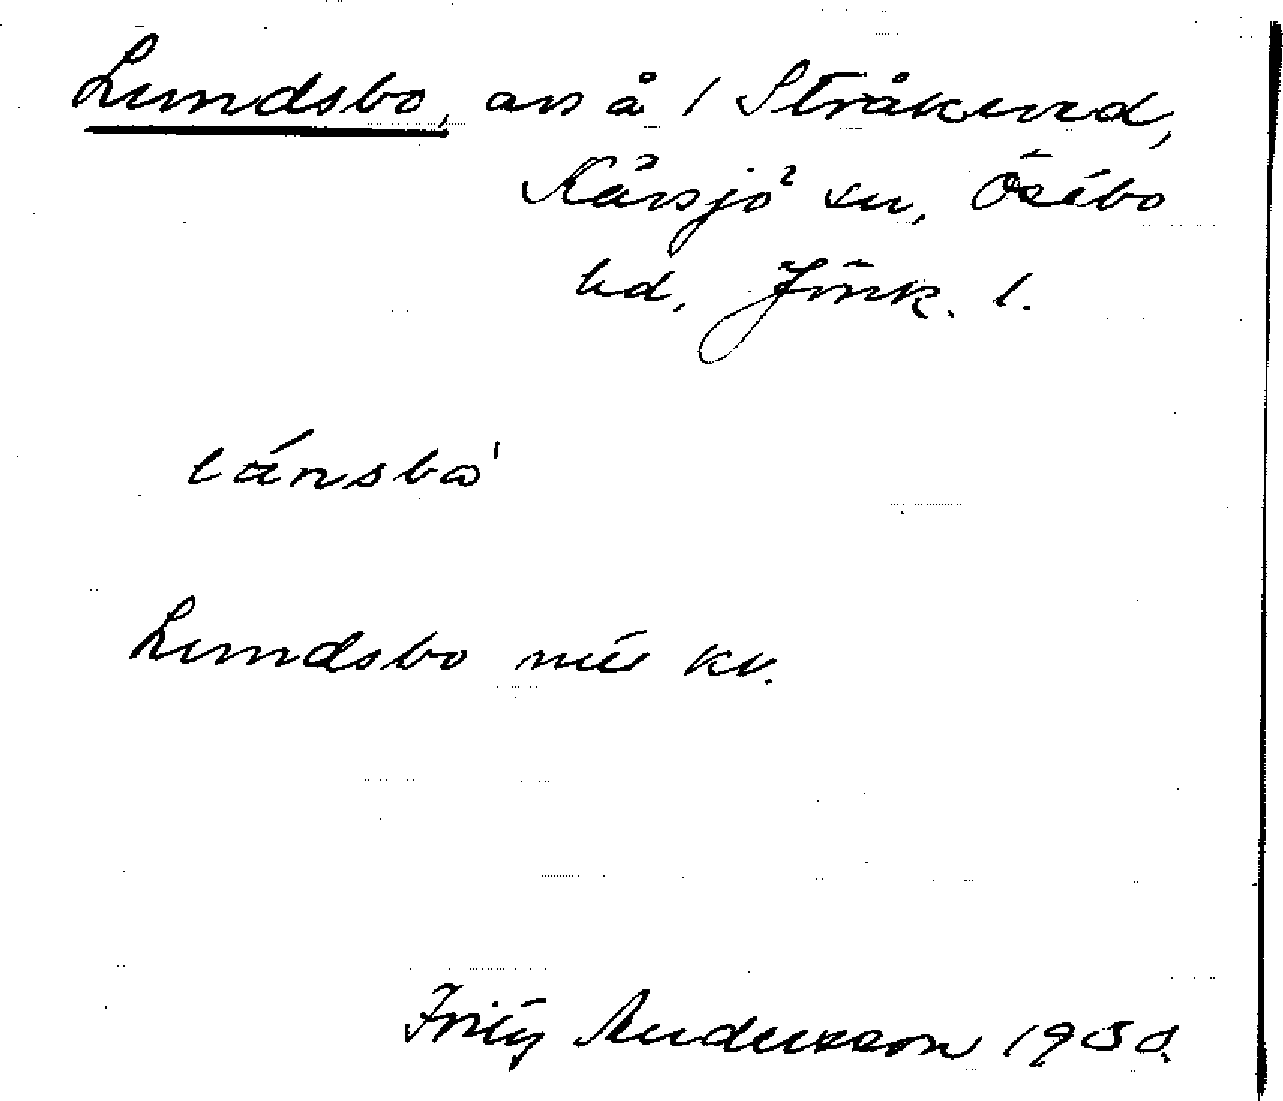 Lundsbo, avs å 1 Stråkeved,
Kävsjö sn, Östbo
hd, Jönk. l.
lánsbo'
Lundsbo mis kv.
Fritz Andersson 1930.